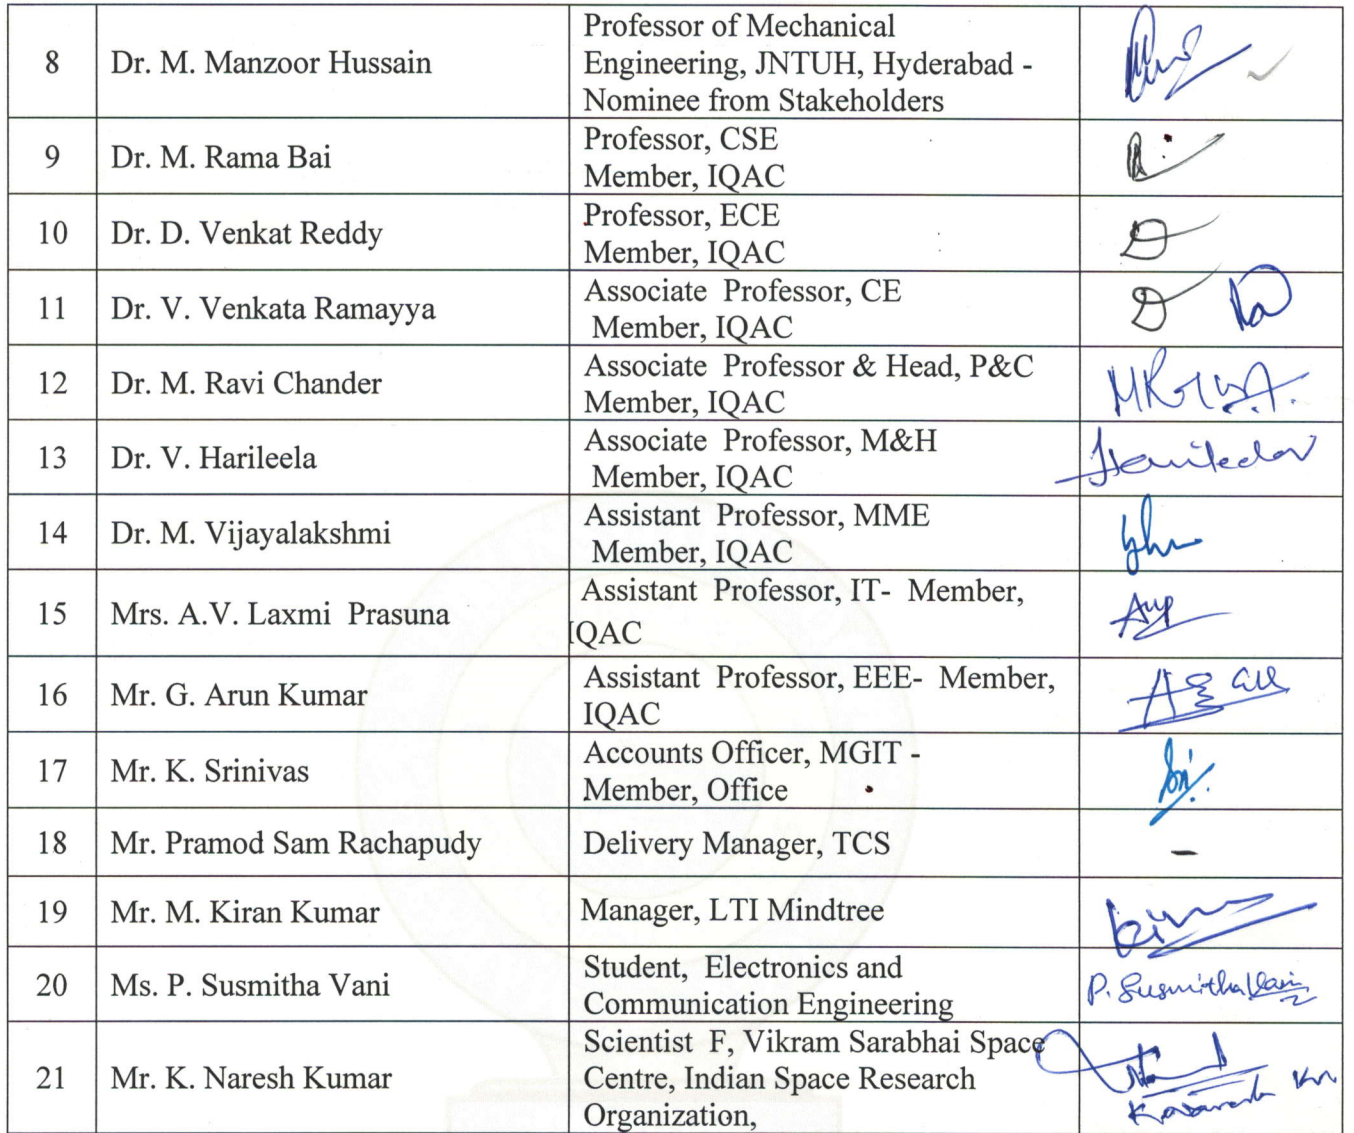 8 Dr. M. Manzoor Hussain
Professor of Mechanical
Engineering, JNTUH, Hyderabad -
Nominee from Stakeholders
9 Dr. M. Rama Bai
Professor, CSE
Member, IQAC
10 Dr. D. Venkat Reddy
Professor, ECE
Member, IQAC
11 Dr. V. Venkata Ramayya
Associate Professor, CE
Member, IQAC
12 Dr. M. Ravi Chander
Associate Professor & Head, P&C
Member, IQAC
13 Dr. V. Harileela
Associate Professor, M&H
Member, IQAC
14 Dr. M. Vijayalakshmi
Assistant Professor, MME
Member, IQAC
15 Mrs. A.V. Laxmi Prasuna
Assistant Professor, IT- Member,
IQAC
16 Mr. G. Arun Kumar
Assistant Professor, EEE- Member,
IQAC
17 Mr. K. Srinivas
Accounts Officer, MGIT -
Member, Office
18 Mr. Pramod Sam Rachapudy Delivery Manager, TCS -
19 Mr. M. Kiran Kumar Manager, LTI Mindtree
20 Ms. P. Susmitha Vani
Student, Electronics and
Communication Engineering
P. Susmitha Vani
21 Mr. K. Naresh Kumar
Scientist F, Vikram Sarabhai Space
Centre, Indian Space Research
Organization,